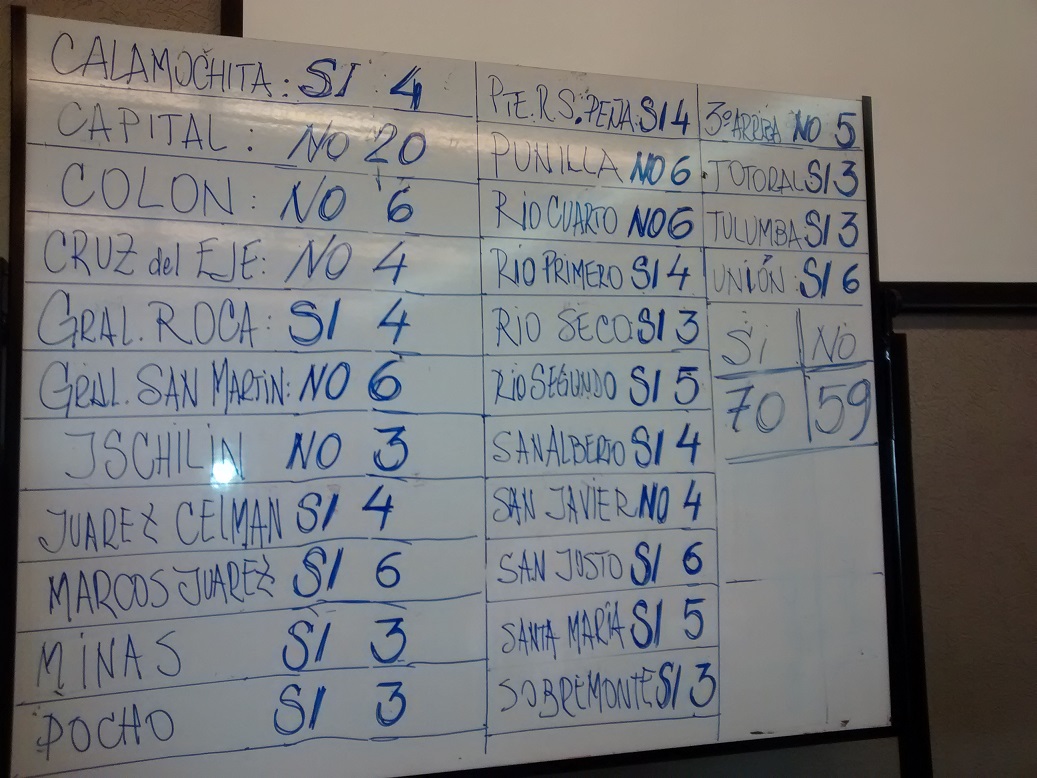 CALAMOCHITA: SI 4
CAPITAL: NO 20
COLON: NO 6
CRUZ del EJE: NO 4
GRAL. ROCA: SI 4
GRAL. SAN MARTIN: NO 6
ISCHILIN NO 3
JUAREZ CELMAN SI 4
MARCOS JUAREZ SI 6
MINAS SI 3
POCHO SI 3
PTE. R. S. PEÑA SI 4
PUNILLA NO 6
RIO CUARTO NO 6
RIO PRIMERO SI 4
RIO SECO SI 3
RIO SEGUNDO SI 5
SAN ALBERTO SI 4
SAN JAVIER NO 4
SAN JUSTO SI 6
SANTA MARIA SI 5
SOBREMONTE SI 3
3º ARRIBA NO 5
TOTORAL SI 3
TULUMBA SI 3
UNIÓN: SI 6
SI NO
70 59